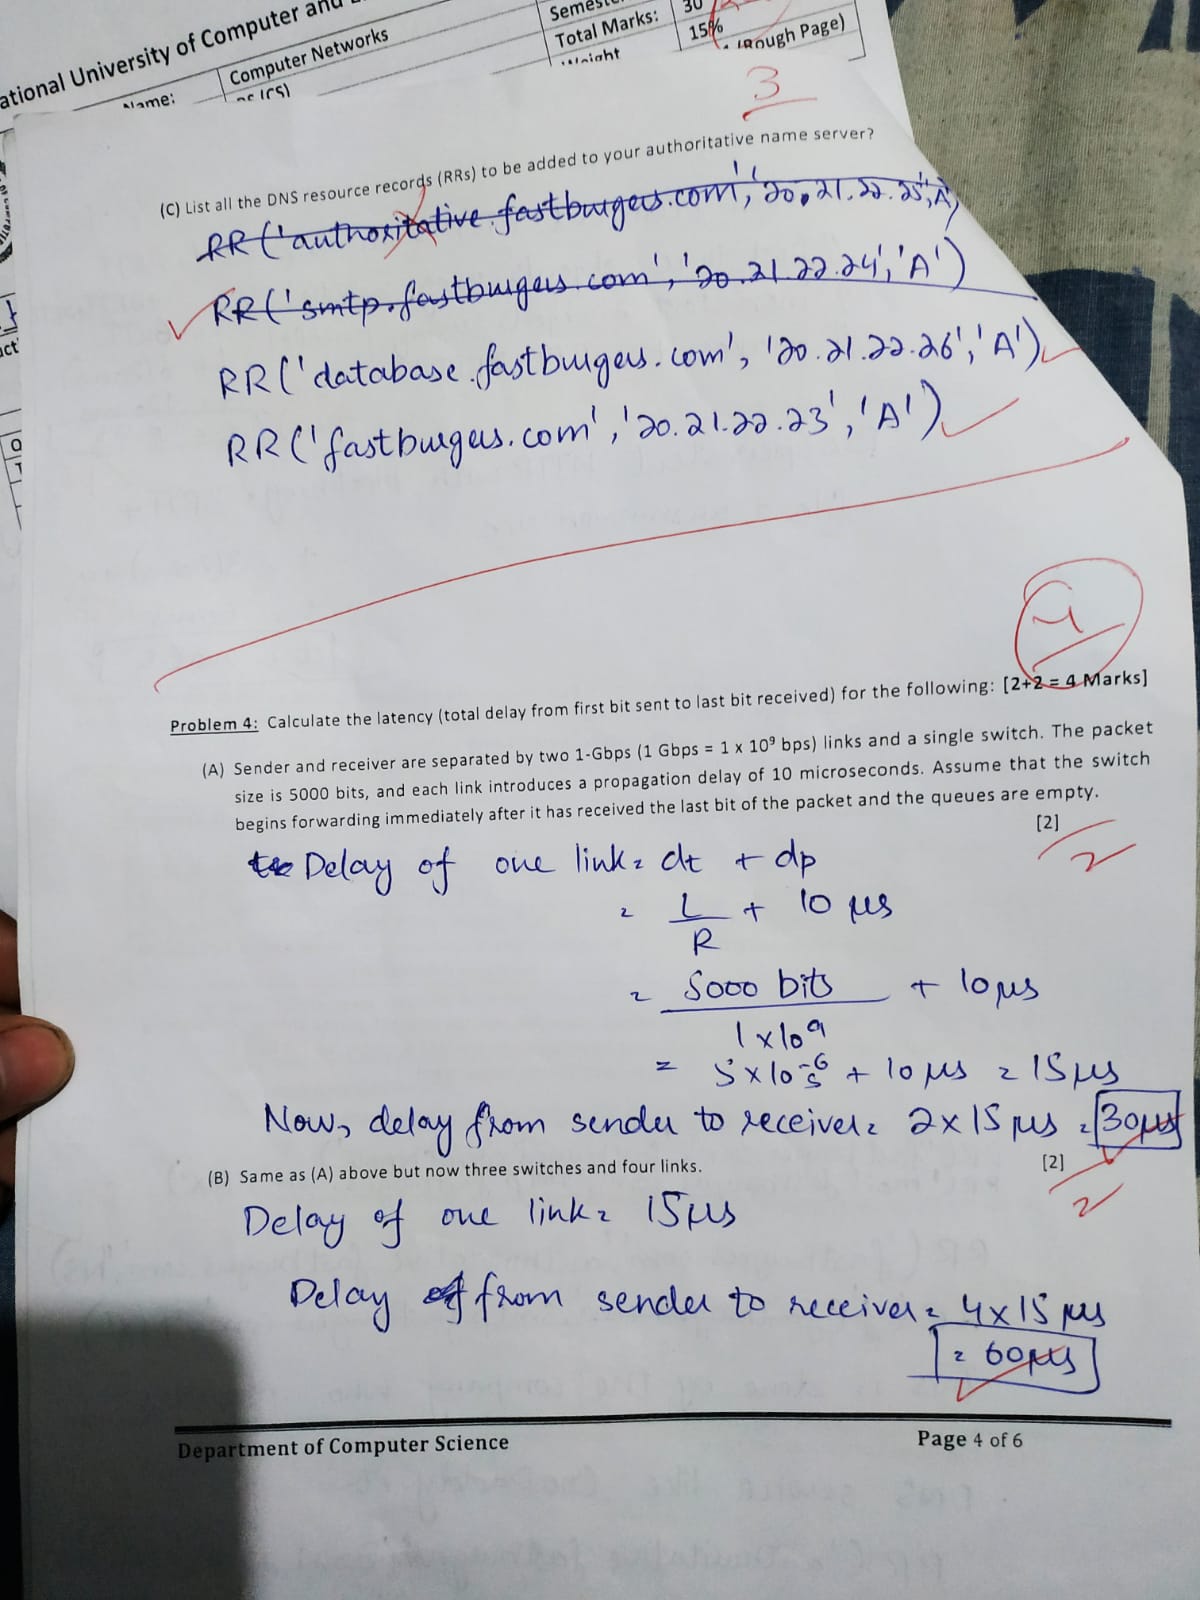 ational University of Computer and
Name:
Computer Networks
Total Marks:
30
15%
(Rough Page)
3
(C) List all the DNS resource records (RRs) to be added to your authoritative name server?
RR ('authoritative.fastburgers.com', '20.21.22.25', 'A')
RR ('smtp.fastburgers.com', '20.21.22.24', 'A')
RR ('database.fastburgers.com', '20.21.22.26', 'A')
RR ('fastburgers.com', '20.21.22.23', 'A')
4
Problem 4: Calculate the latency (total delay from first bit sent to last bit received) for the following: [2+2 = 4 Marks]
(A) Sender and receiver are separated by two 1-Gbps (1 Gbps = 1 x 10⁹ bps) links and a single switch. The packet
size is 5000 bits, and each link introduces a propagation delay of 10 microseconds. Assume that the switch
begins forwarding immediately after it has received the last bit of the packet and the queues are empty.
[2]
2
Delay of one link = dt + dp
= L/R + 10 μs
= 5000 bits / 1x10⁹ + 10μs
= 5x10⁻⁶ s + 10 μs = 15μs
Now, delay from sender to receiver = 2x15 μs = 30μs
(B) Same as (A) above but now three switches and four links.
[2]
2
Delay of one link = 15μs
Delay from sender to receiver = 4x15 μs
= 60μs
Department of Computer Science
Page 4 of 6